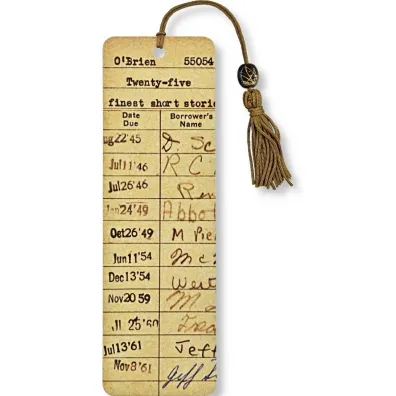 O'Brien 55054
Twenty-five
finest short storie
Date Due Borrower's Name
ug 22'45 D. Sc
Jul 11'46 R C
Jul 26'46 Ren
Jan 24'49 Abbot
Oct 26'49 M Pie
Jun 11'54
Dec 13'54 West
Nov 20 59
Jl 25'60
Jul 13'61 Jeff
Nov 8'61 Jeff